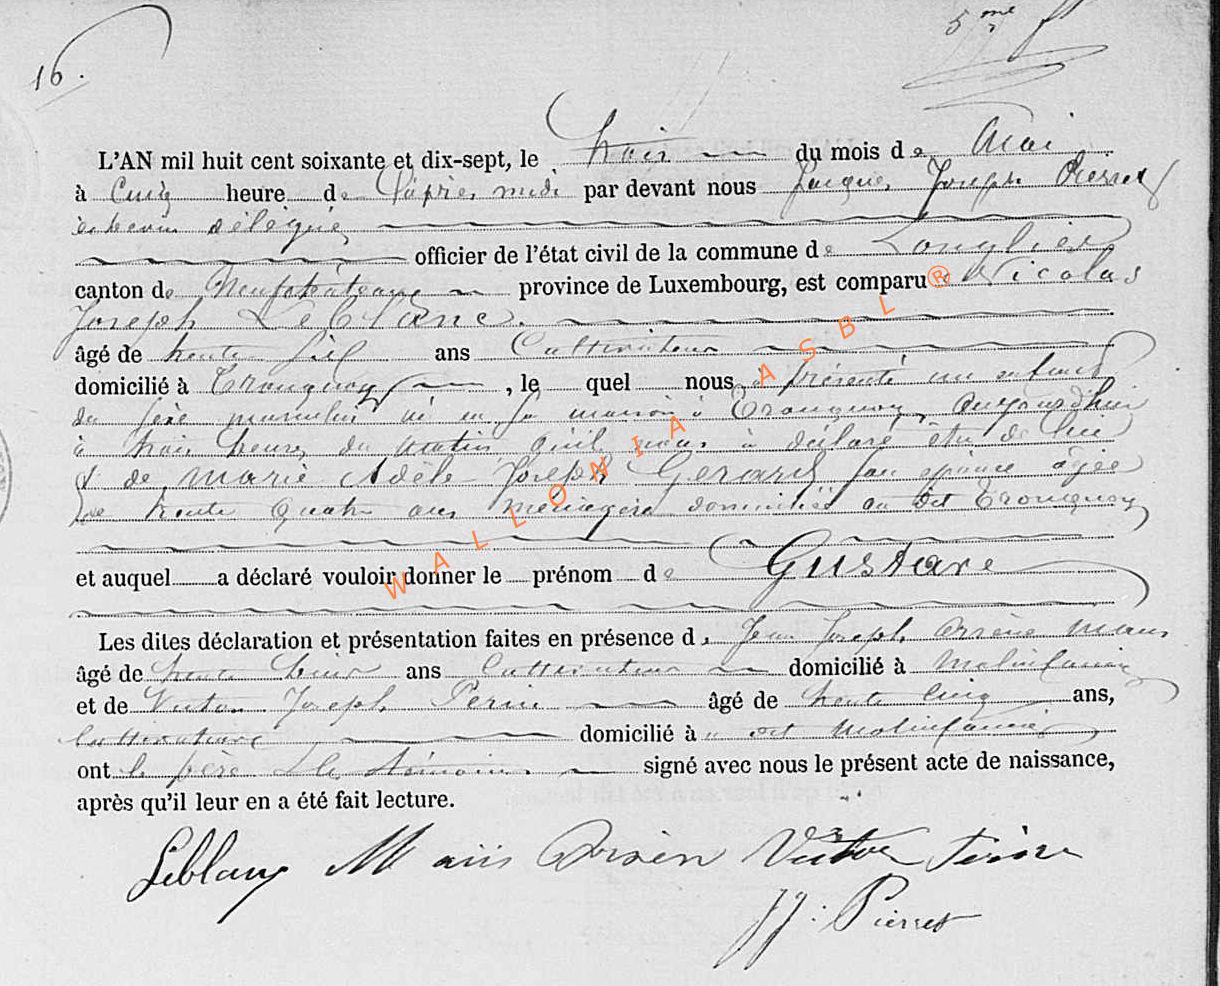 16.
5me
L'AN mil huit cent soixante et dix-sept, le trois du mois de Mai
à Cinq heure de l'après midi par devant nous Jacques Joseph Pierret
échevin délégué
officier de l'état civil de la commune de Longlier
canton de Neufchâteau province de Luxembourg, est comparu Nicolas
Joseph Leblanc.
âgé de trente six ans Cultivateur
domicilié à Tronquoy, le quel nous a présenté un enfant
du sexe masculin né en sa maison à Tronquoy, aujourd'hui
à trois heures du matin qu'il nous à déclaré être de lui
& de Marie Adèle Joseph Gerard son épouse âgée
de trente quatre ans ménagère domiciliée au dit Tronquoy
et auquel a déclaré vouloir donner le prénom de Gustave
Les dites déclaration et présentation faites en présence de Jean Joseph Arsène Maus
âgé de trente ans Cultivateur domicilié à Molinfaing
et de Victor Joseph Perin âgé de trente cinq ans,
Cultivateur domicilié à dit Molinfaing
ont le père & les témoins signé avec nous le présent acte de naissance,
après qu'il leur en a été fait lecture.
Leblanc Arsèn Victor
JJ: Pierret
WALLONIA ASBL®